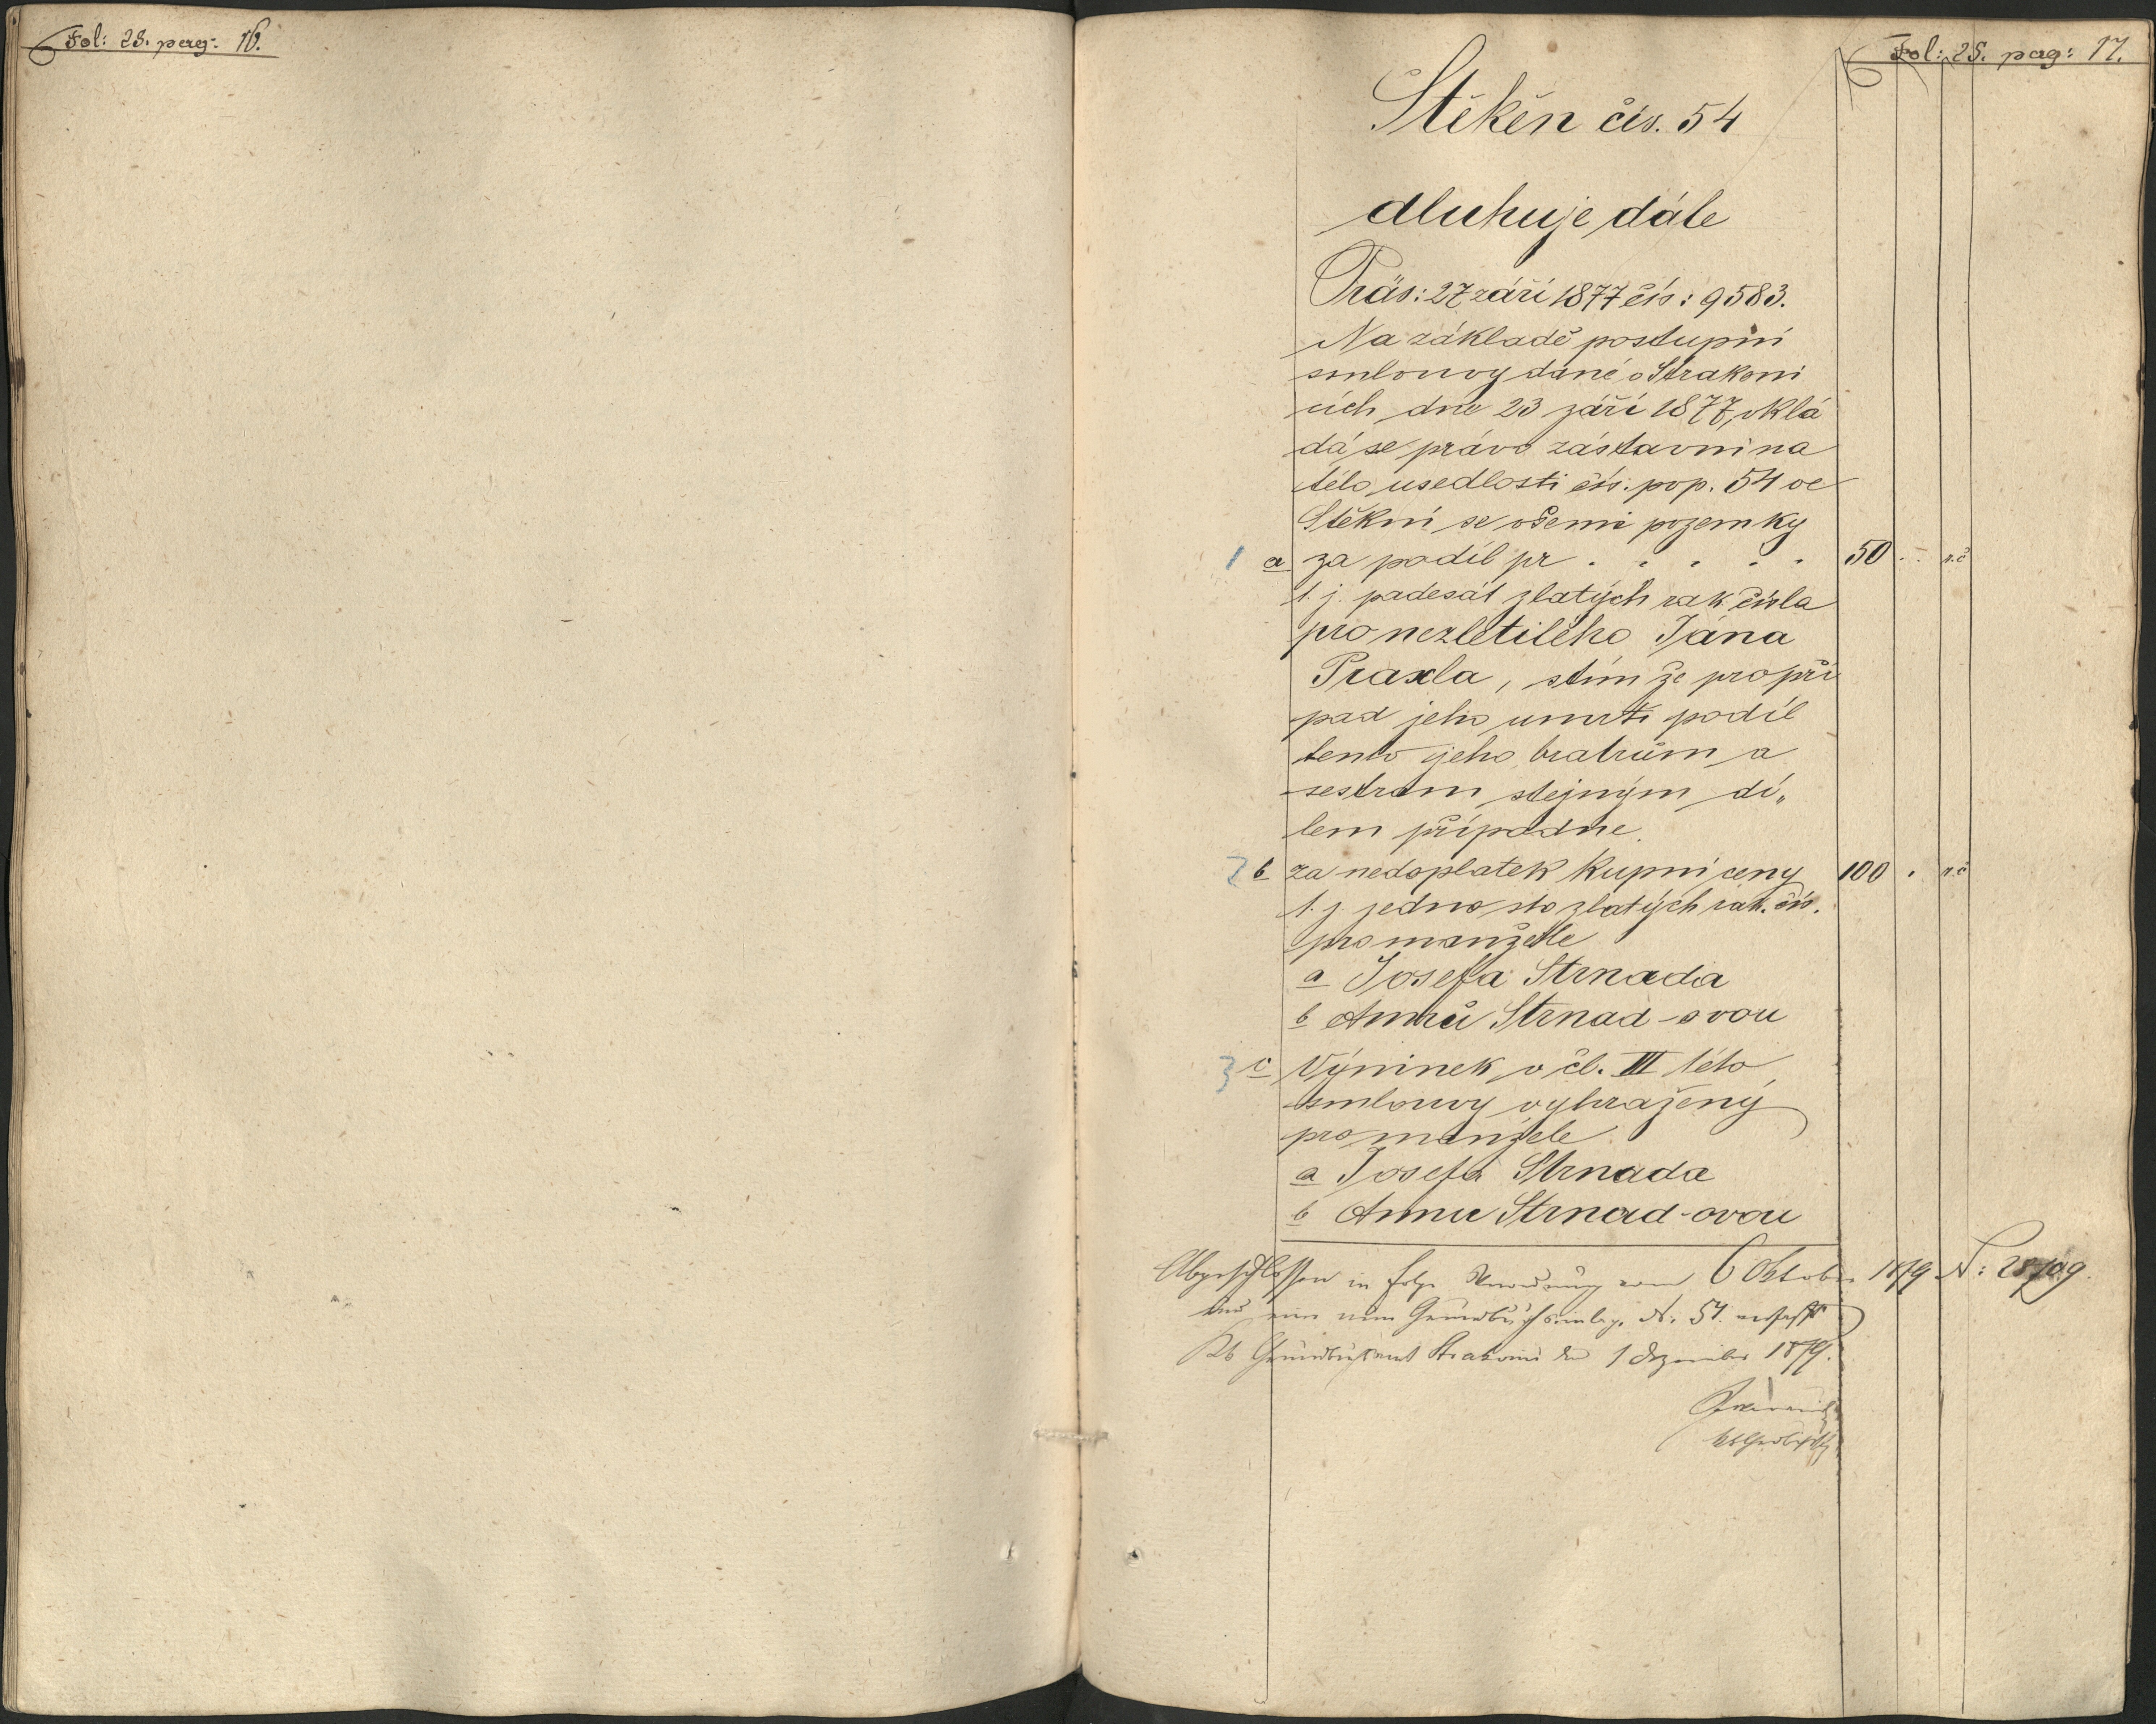 Fol: 28. pag: 16.
Fol: 28. pag: 17.
Štěkěn čís. 54
dluhuje dále
Präs: 27 září 1877 čís: 9583.
Na základě postupní
smlouvy dáné v Strakoni
cích dne 23 září 1877, vklá
dá se právo zástavní na
této usedlosti čís. pop. 54 ve
Štěkni se všemi pozemky
1 a za podíl pr . . . . . 50 . - r. č
t. j. padesát zlatých rak čísla
pro nezletilého Jána
Praxla, stím že pro pří
pad jeho umrtí podíl
tento jeho bratrům a
sestrám stejným dí„
lem připadne.
2 b za nedoplatek kupní ceny 100 . r. č
t. j. jedno sto zlatých rak. čís.
pro manžele
a Josefa Strnada
b Annu Strnad-ovou
3 c Výminek v čl. III této
smlouvy vyhražený
pro manžele
a Josefa Strnada
b Annu Strnad-ovou
Abgeschlossen in Folge Verordnung vom 6 Oktober 1879 N:
und eine neue Grundbuchseinlage N: 54.
Kk Grundbuchsamt Strakonic den 1 Dezember 1879.